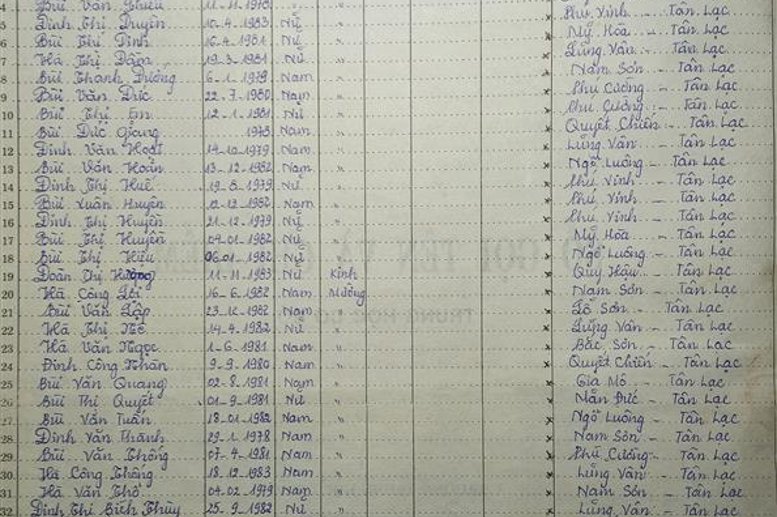 4 Bùi Văn Chiều 11-11-1978 Nữ " Phú Vinh - Tân Lạc
5 Đinh Thị Duyên 10-4-1983 Nữ " Mỹ Hòa - Tân Lạc
6 Bùi Thị Dinh 16-4-1981 Nữ " Lũng Vân - Tân Lạc
7 Hà Thị Dậm 19-3-1981 Nữ " Nam Sơn - Tân Lạc
8 Bùi Thanh Dương 6-1-1979 Nam " Phú Cường - Tân Lạc
9 Bùi Văn Đức 22-7-1980 Nam " Phú Cường - Tân Lạc
10 Bùi Thị Em 12-1-1981 Nữ " Quyết Chiến - Tân Lạc
11 Bùi Đức Giang 1978 Nam " Lũng Vân - Tân Lạc
12 Đinh Văn Hoạt 14-10-1979 Nam " Ngổ Luông - Tân Lạc
13 Bùi Văn Hoàn 13-12-1982 Nam " Phú Vinh - Tân Lạc
14 Đinh Thị Huê 19-8-1979 Nữ " Phú Vinh - Tân Lạc
15 Bùi Xuân Huyên 12-12-1982 Nam " Phú Vinh - Tân Lạc
16 Đinh Thị Huyên 21-12-1979 Nữ " Mỹ Hòa - Tân Lạc
17 Bùi Thị Huyên 04-01-1982 Nữ " Ngổ Luông - Tân Lạc
18 Bùi Thị Hiệu 06-01-1982 Nữ " Quy Hậu - Tân Lạc
19 Đoàn Thị Hương 11-11-1983 Nữ Kinh Nam Sơn - Tân Lạc
20 Hà Công Lợi 16-6-1982 Nam Mường Lỗ Sơn - Tân Lạc
21 Bùi Văn Lập 23-12-1982 Nam " Lũng Vân - Tân Lạc
22 Hà Thị Nê 14-4-1982 Nữ " Bắc Sơn - Tân Lạc
23 Hà Văn Ngọc 1-6-1981 Nam " Quyết Chiến - Tân Lạc
24 Đinh Công Nhân 9-9-1980 Nam " Gia Mô - Tân Lạc
25 Bùi Văn Quang 02-8-1981 Nam " Mãn Đức - Tân Lạc
26 Bùi Thị Quyết 01-9-1981 Nữ " Ngổ Luông - Tân Lạc
27 Bùi Văn Tuấn 18-01-1982 Nam " Nam Sơn - Tân Lạc
28 Đinh Văn Thành 29-1-1978 Nam " Phú Cường - Tân Lạc
29 Bùi Văn Thông 07-4-1981 Nam " Lũng Vân - Tân Lạc
30 Hà Công Thống 18-12-1983 Nam " Nam Sơn - Tân Lạc
31 Hà Văn Thơ 04-02-1979 Nam " Lũng Vân - Tân Lạc
32 Đinh Thị Bích Thùy 25-9-1982 Nữ "